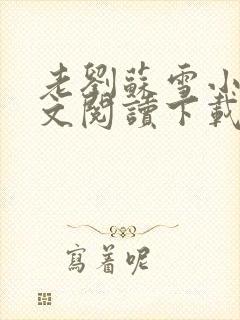 老劉蘇雪小
文閱讀下載
寫着呢